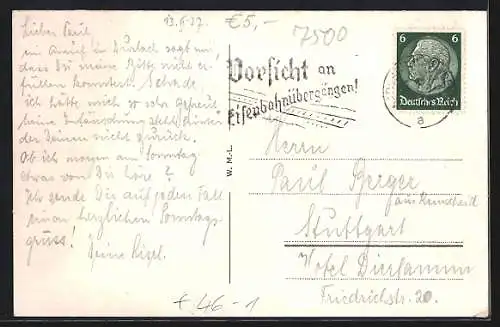 13.6.37. €5,-
7500
Lieber Paul
ein Anruf in Durlach sagt mir
dass Du meine Bitte nicht er-
füllen konntest. Schade,
ich hatte mich so sehr gefreut
meine Enttäuschung steht hinter
der Deinen nicht zurück.
Ob ich morgen am Sonntag
etwas von Dir höre?
Ich sende Dir auf jeden Fall
einen herzlichen Sonntags-
gruss!
Deine Lisel.
Vorsicht an
Eisenbahnübergängen!
6 6
Deutsches Reich
a
W. M.-L.
Herrn
Paul Berger
aus Remscheid
Stuttgart
Hotel Dierlamm
Friedrichstr. 20.
+46-1